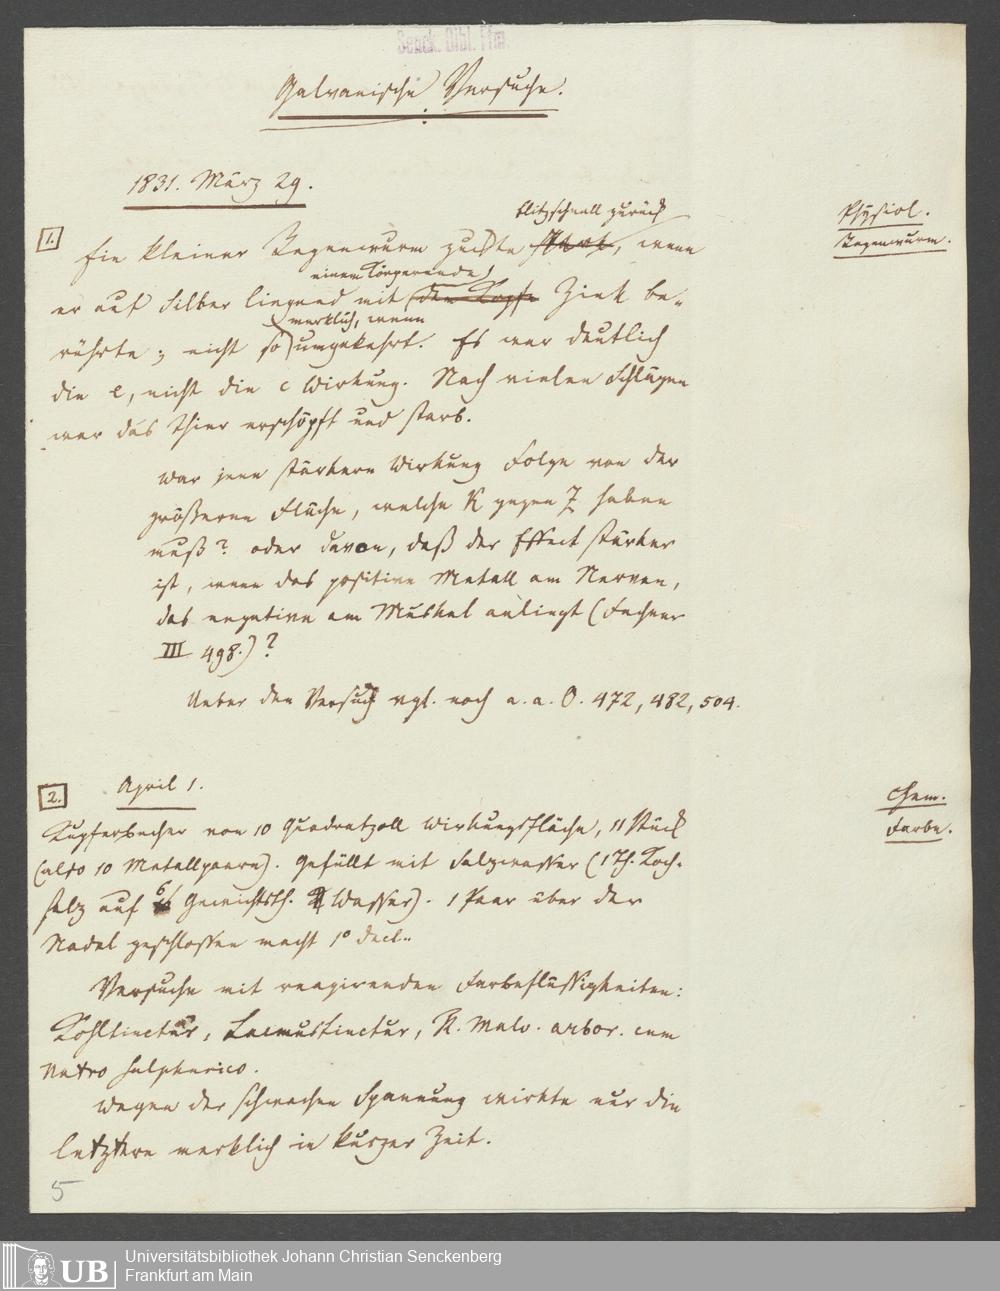 Senck. Bibl. Ffm.
Galvanische Versuche.
1831. März 29.
Physiol.
Regenwurm.
blitzschnell zurück
1. Ein kleiner Regenwurm zuckte stark, wenn
einem Körperende,
er auf Silber liegend mit dem Kopfe Zink be-
merklich, wenn
rührte; nicht so umgekehrt. Es war deutlich
die e, nicht die c Wirkung. Nach vielen Schlägen
war das Thier erschöpft und starb.
War jene stärkere Wirkung Folge von der
größeren Fläche, welche K gegen Z haben
muß? oder davon, daß der Effect stärker
ist, wenn das positive Metall am Nerven,
das negative am Muskel anliegt (Fechner
III 498.)?
Ueber den Versuch vgl. noch a. a. O. 472, 482, 504.
2. April 1.
Chem.
Farbe.
Kupferbecher von 10 Quadratzoll Wirkungsfläche, 11 Stück
(also 10 Metallpaare). Gefüllt mit Salzwasser (1 Th. Koch-
salz auf 6 Gewichtsth. Wasser). 1 Paar über der
Nadel geschlossen macht 1° decl..
Versuche mit reagirenden Farbeflüssigkeiten:
Kohltinctur, Lacmustinctur, R. Malv. arbor. cum
Natro sulphurico.
Wegen der schwachen Spannung wirkte nur die
letztere merklich in kurzer Zeit.
5
UB
Universitätsbibliothek Johann Christian Senckenberg
Frankfurt am Main